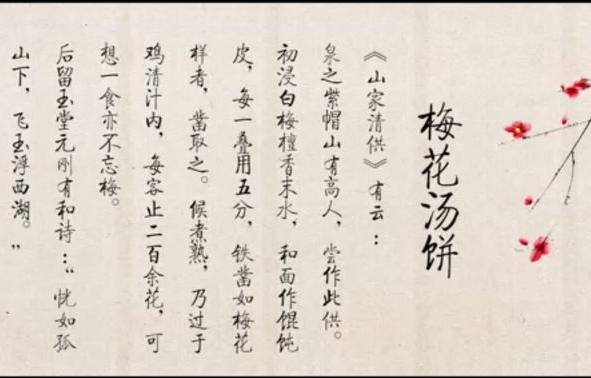 梅花汤饼
《山家清供》有云：
泉之紫帽山有高人，尝作此供。
初浸白梅檀香末水，和面作馄饨
皮，每一叠用五分，铁凿如梅花
样者，凿取之。候煮熟，乃过于
鸡清汁内，每客止二百余花，可
想一食亦不忘梅。
后留玉堂元刚有和诗：“恍如孤
山下，飞玉浮西湖。”